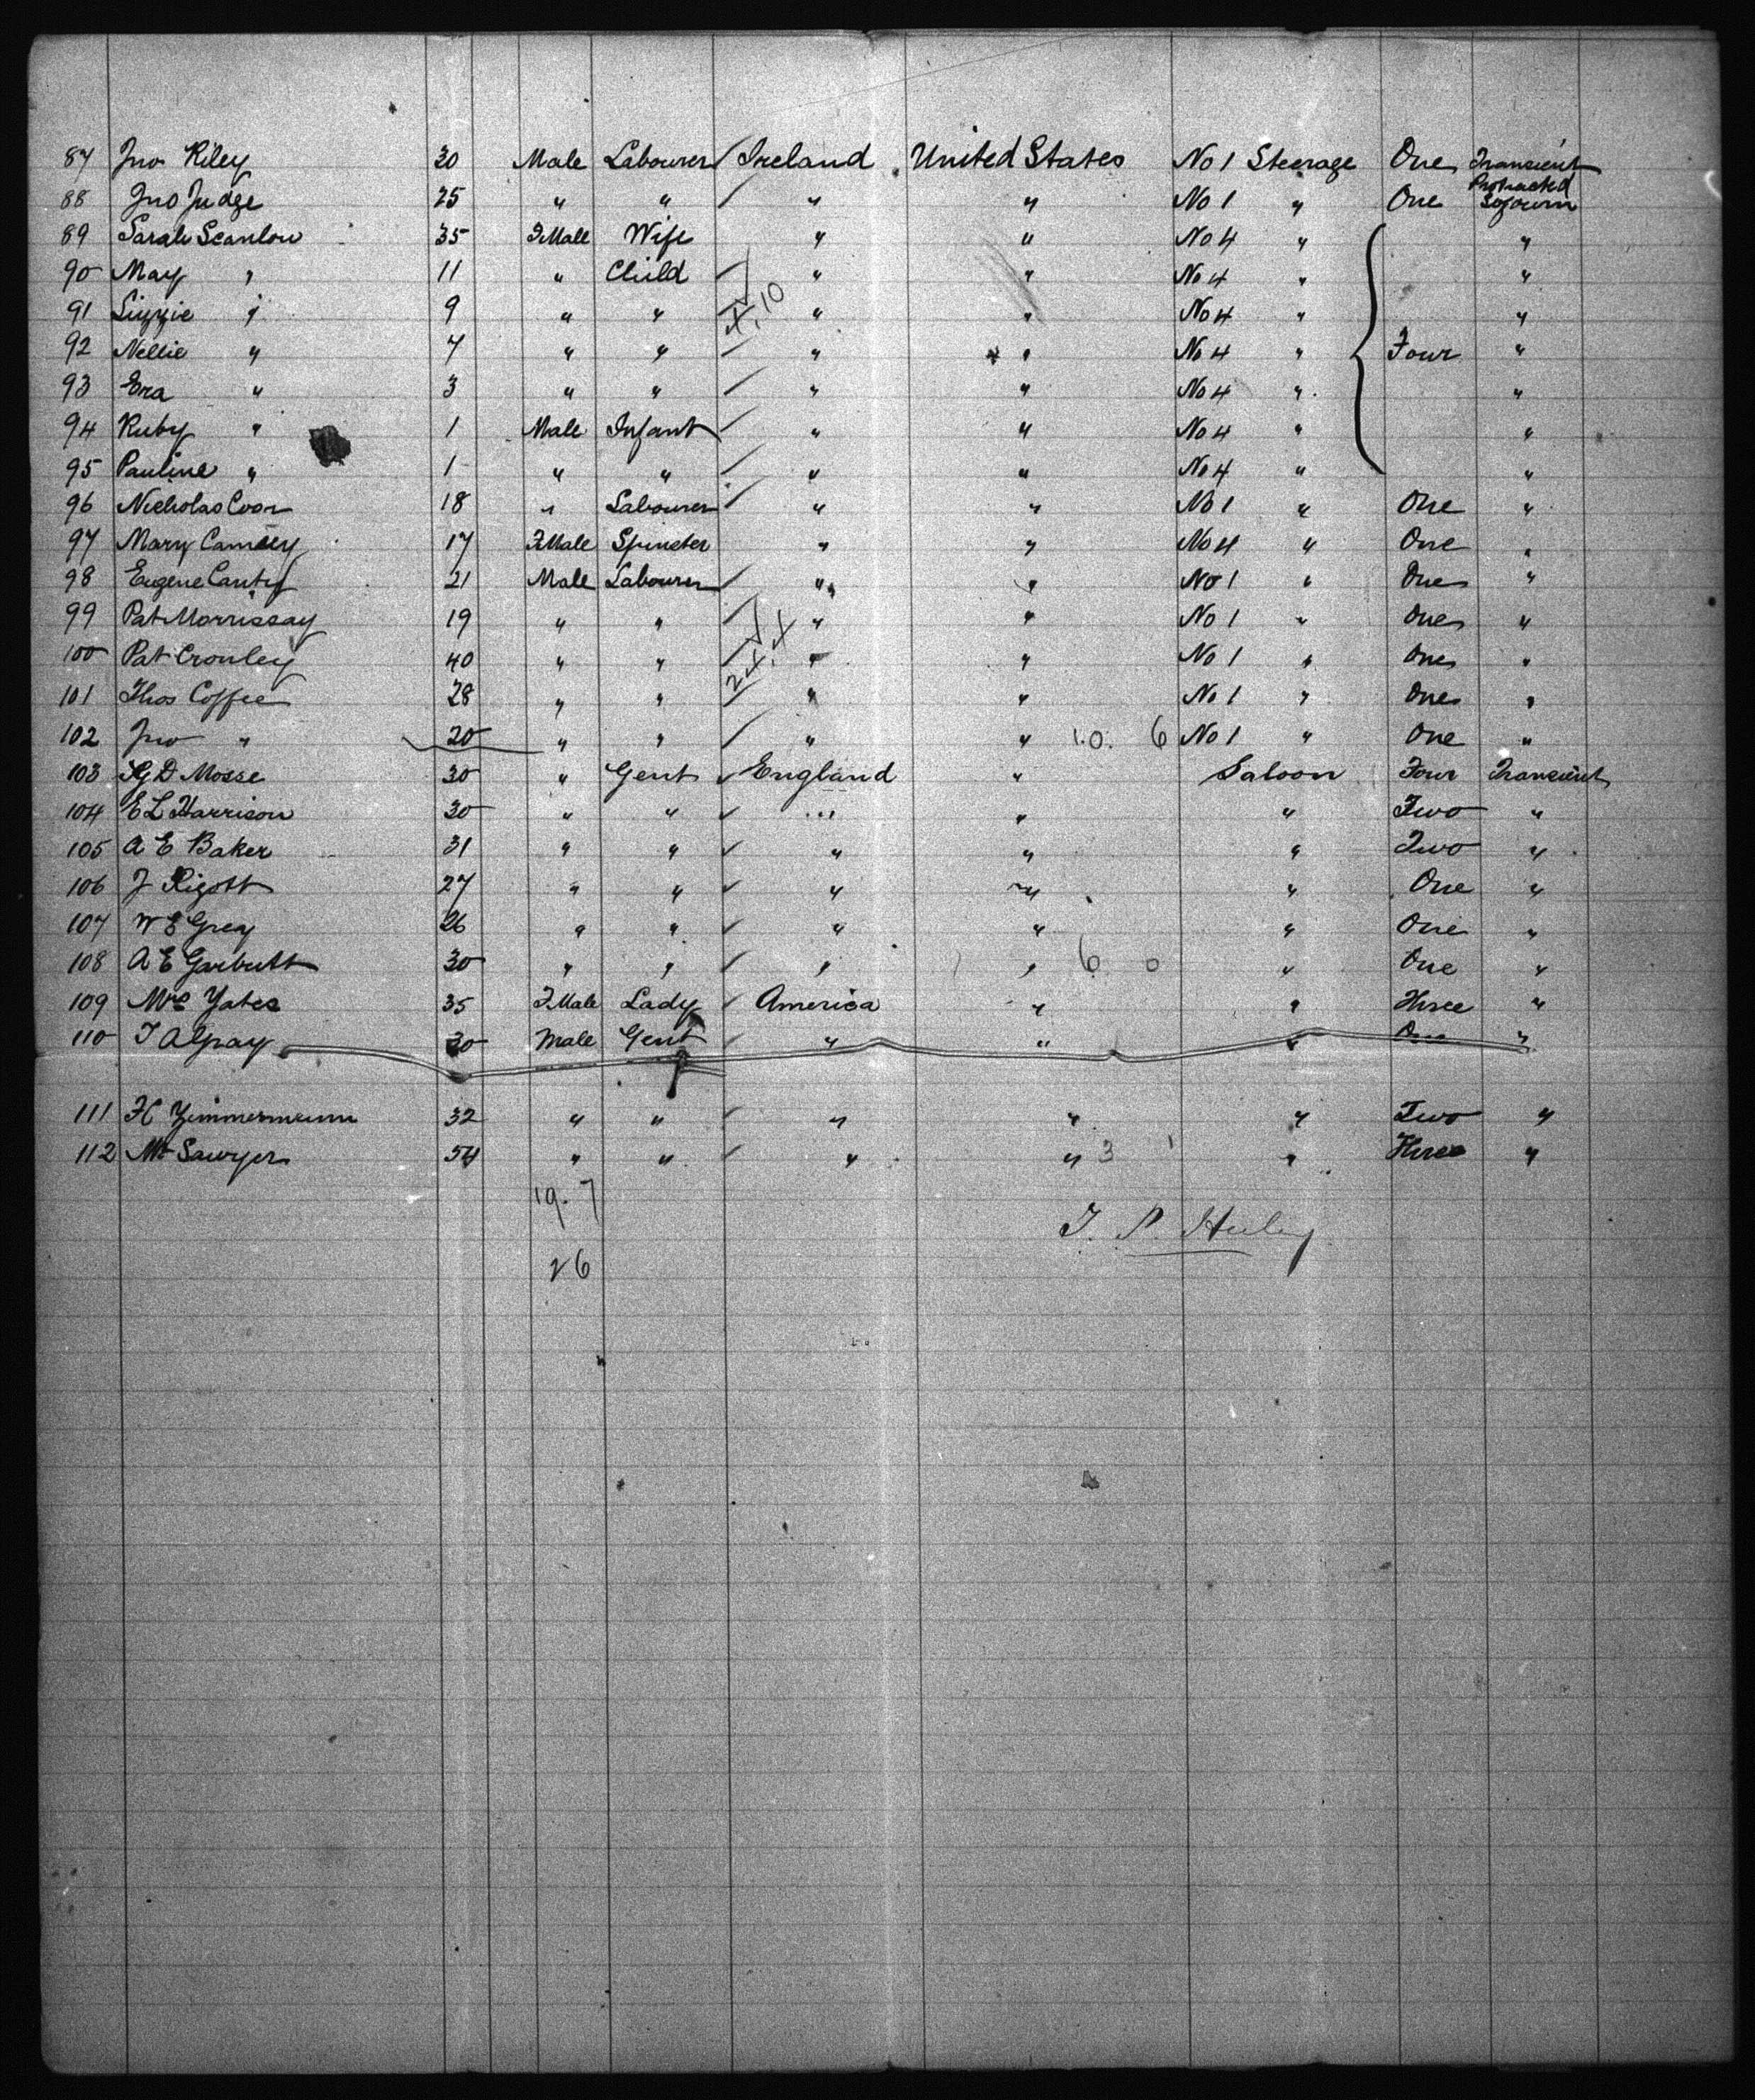 87 Jno Riley 30 Male Labourer Ireland United States No 1 Steerage One Transient
88 Jno Judge 25 " " " " No 1 " One Protracted Sojourn
89 Sarah Scanlow 35 FMale Wife " " No 4 " "
90 May " 11 " Child " " No 4 " "
91 Lizzie " 9 " " " " No 4 " "
92 Nellie " 7 " " " " No 4 " Four "
93 Eva " 3 " " " " No 4 " "
94 Ruby " 1 Male Infant " " No 4 " "
95 Pauline " 1 " " " " No 4 " "
96 Nicholas Coon 18 " Labourer " " No 1 " One "
97 Mary 17 FMale Spinster " " No 4 " One "
98 Eugene Canty 21 Male Labourer " " No 1 " One "
99 Pat Morrissay 19 " " " " No 1 " One "
100 Pat Cronley 40 " " " " No 1 " One "
101 Thos Coffee 28 " " " " No 1 " One "
102 Jno " 20 " " " " 10. 6 No 1 " One "
103 D Mosse 30 " Gent England " Saloon Four Transient
104 E L Harrison 30 " " " " " Two "
105 A E Baker 31 " " " " " Two "
106 J Rigott 27 " " " " " One "
107 W E Grey 26 " " " " " One "
108 A E Garbutt 30 " " " " 6 0 " One "
109 Mrs Yates 35 FMale Lady America " " Three "
110 T Algray 30 Male Gent " " " One "
111 H Zimmermann 32 " " " " " Two "
112 Mr Sawyer 54 " " " " 3 1 " Three "
19. 7
T. P. Huley
26